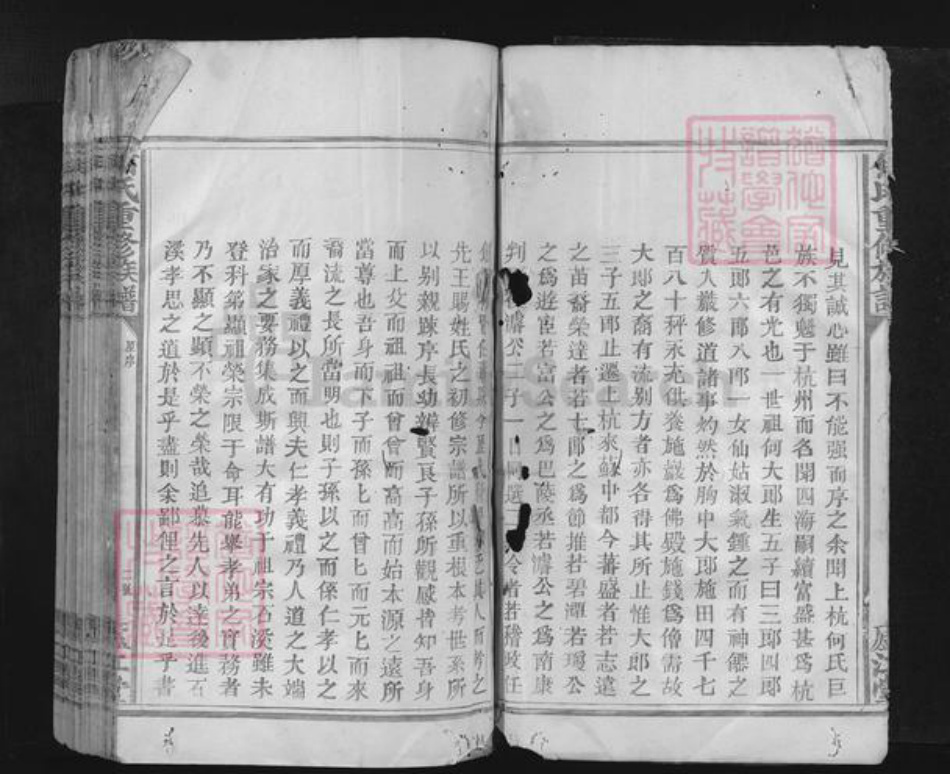 見其誠心雖曰不能强而序之余聞上杭何氏巨
族不獨魁于杭州而名聞四海嗣續富盛甚爲杭
邑之有光也一世祖何大郎生五子曰三郎四郎
五郎六郎八郎一女仙姑淑氣鍾之而有神德之
質入巖修道諸事灼然於胸中大郎施田四千七
百八十秤永充供養施巖爲佛殿施錢爲僧需故
大郎之裔有流别方者亦各得其所止惟大郎之
三子五郎止遷上杭來蘇中都今蕃盛者若志遠
之苗裔榮達者若七郎之爲節推若碧潭若瓊公
之爲遊宦若富公之爲巴陵丞若濬公之爲南康
判 濬公二子一 同選 令者若稽政任
先王賜姓氏之初修宗譜所以重根本考世系所
以别親踈序長幼辨賢良子孫所觀感昔知吾身
而上父而祖祖而曾曾而高高而始本源之遠所
當尊也吾身而下子而孫孫而曾曾而元元而來
裔流之長所當明也則子孫以之而係仁孝以之
而厚義禮以之而興夫仁孝義禮乃人道之大端
治家之要務集成斯譜大有功于祖宗石溪雖未
登科第顯祖榮宗限于命耳能舉孝弟之實務者
乃不顯之顯不榮之榮哉追慕先人以達後進石
溪孝思之道於是乎盡則余鄙俚之言於是乎書
氏重修族譜
原序